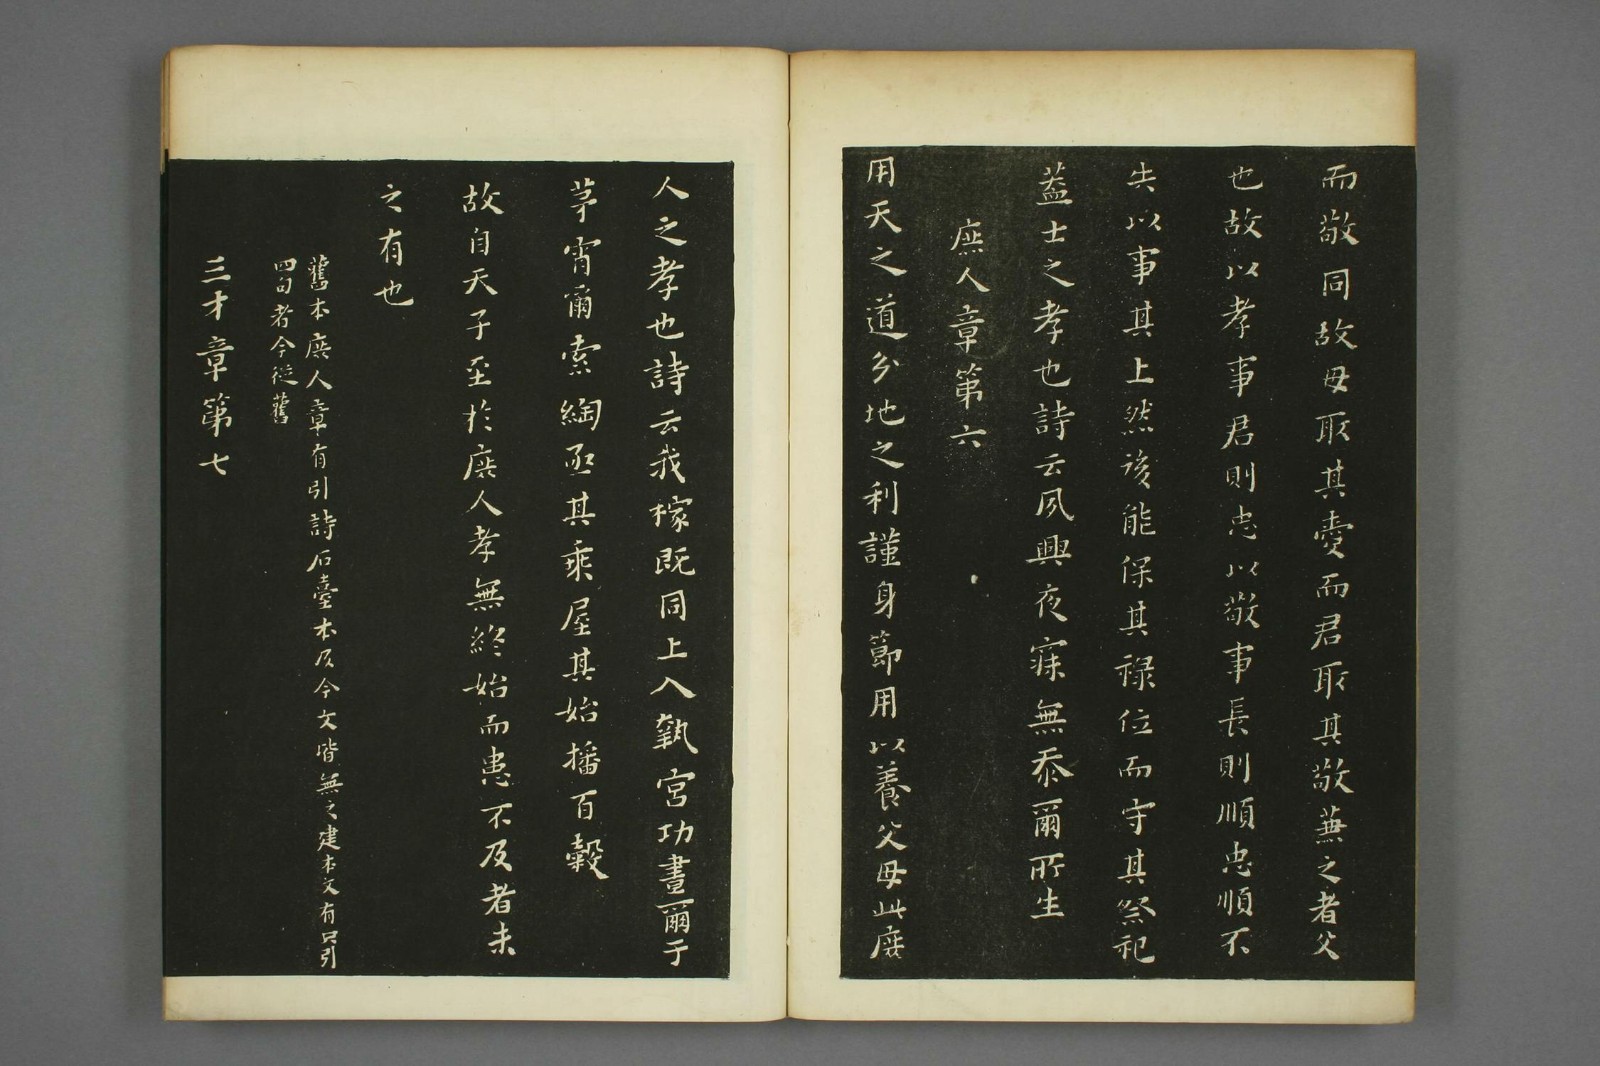 而敬同故母取其愛而君取其敬兼之者父
也故以孝事君則忠以敬事長則順忠順不
失以事其上然後能保其祿位而守其祭祀
葢士之孝也詩云夙興夜寐無忝爾所生
庶人章第六
用天之道分地之利謹身節用以養父母此庶
人之孝也詩云我稼既同上入執宮功晝爾于
茅宵爾索綯亟其乘屋其始播百穀
故自天子至於庶人孝無終始而患不及者未
之有也
舊本庶人章有引詩石臺本及今文皆無之建本文有只引
四句者今從舊
三才章第七